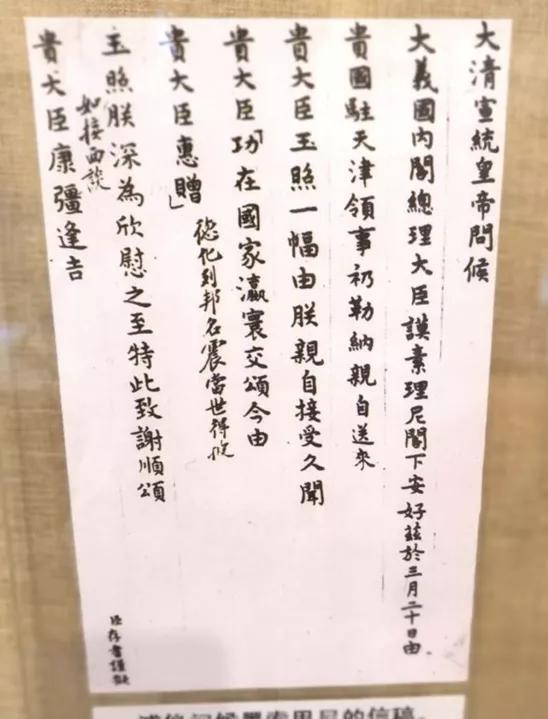 大清宣統皇帝問候
大義國內閣總理大臣謨素理尼閣下安好茲於三月二十日由
貴國駐天津領事礽勒納親自送來
貴大臣玉照一幅由朕親自接受久聞
貴大臣功「在國家瀛寰交頌今由
貴大臣惠贈」
德化列邦名震當世得收
玉照朕深為欣慰之至特此致謝順頌
如接面談
貴大臣康彊逢吉
臣存書謹擬